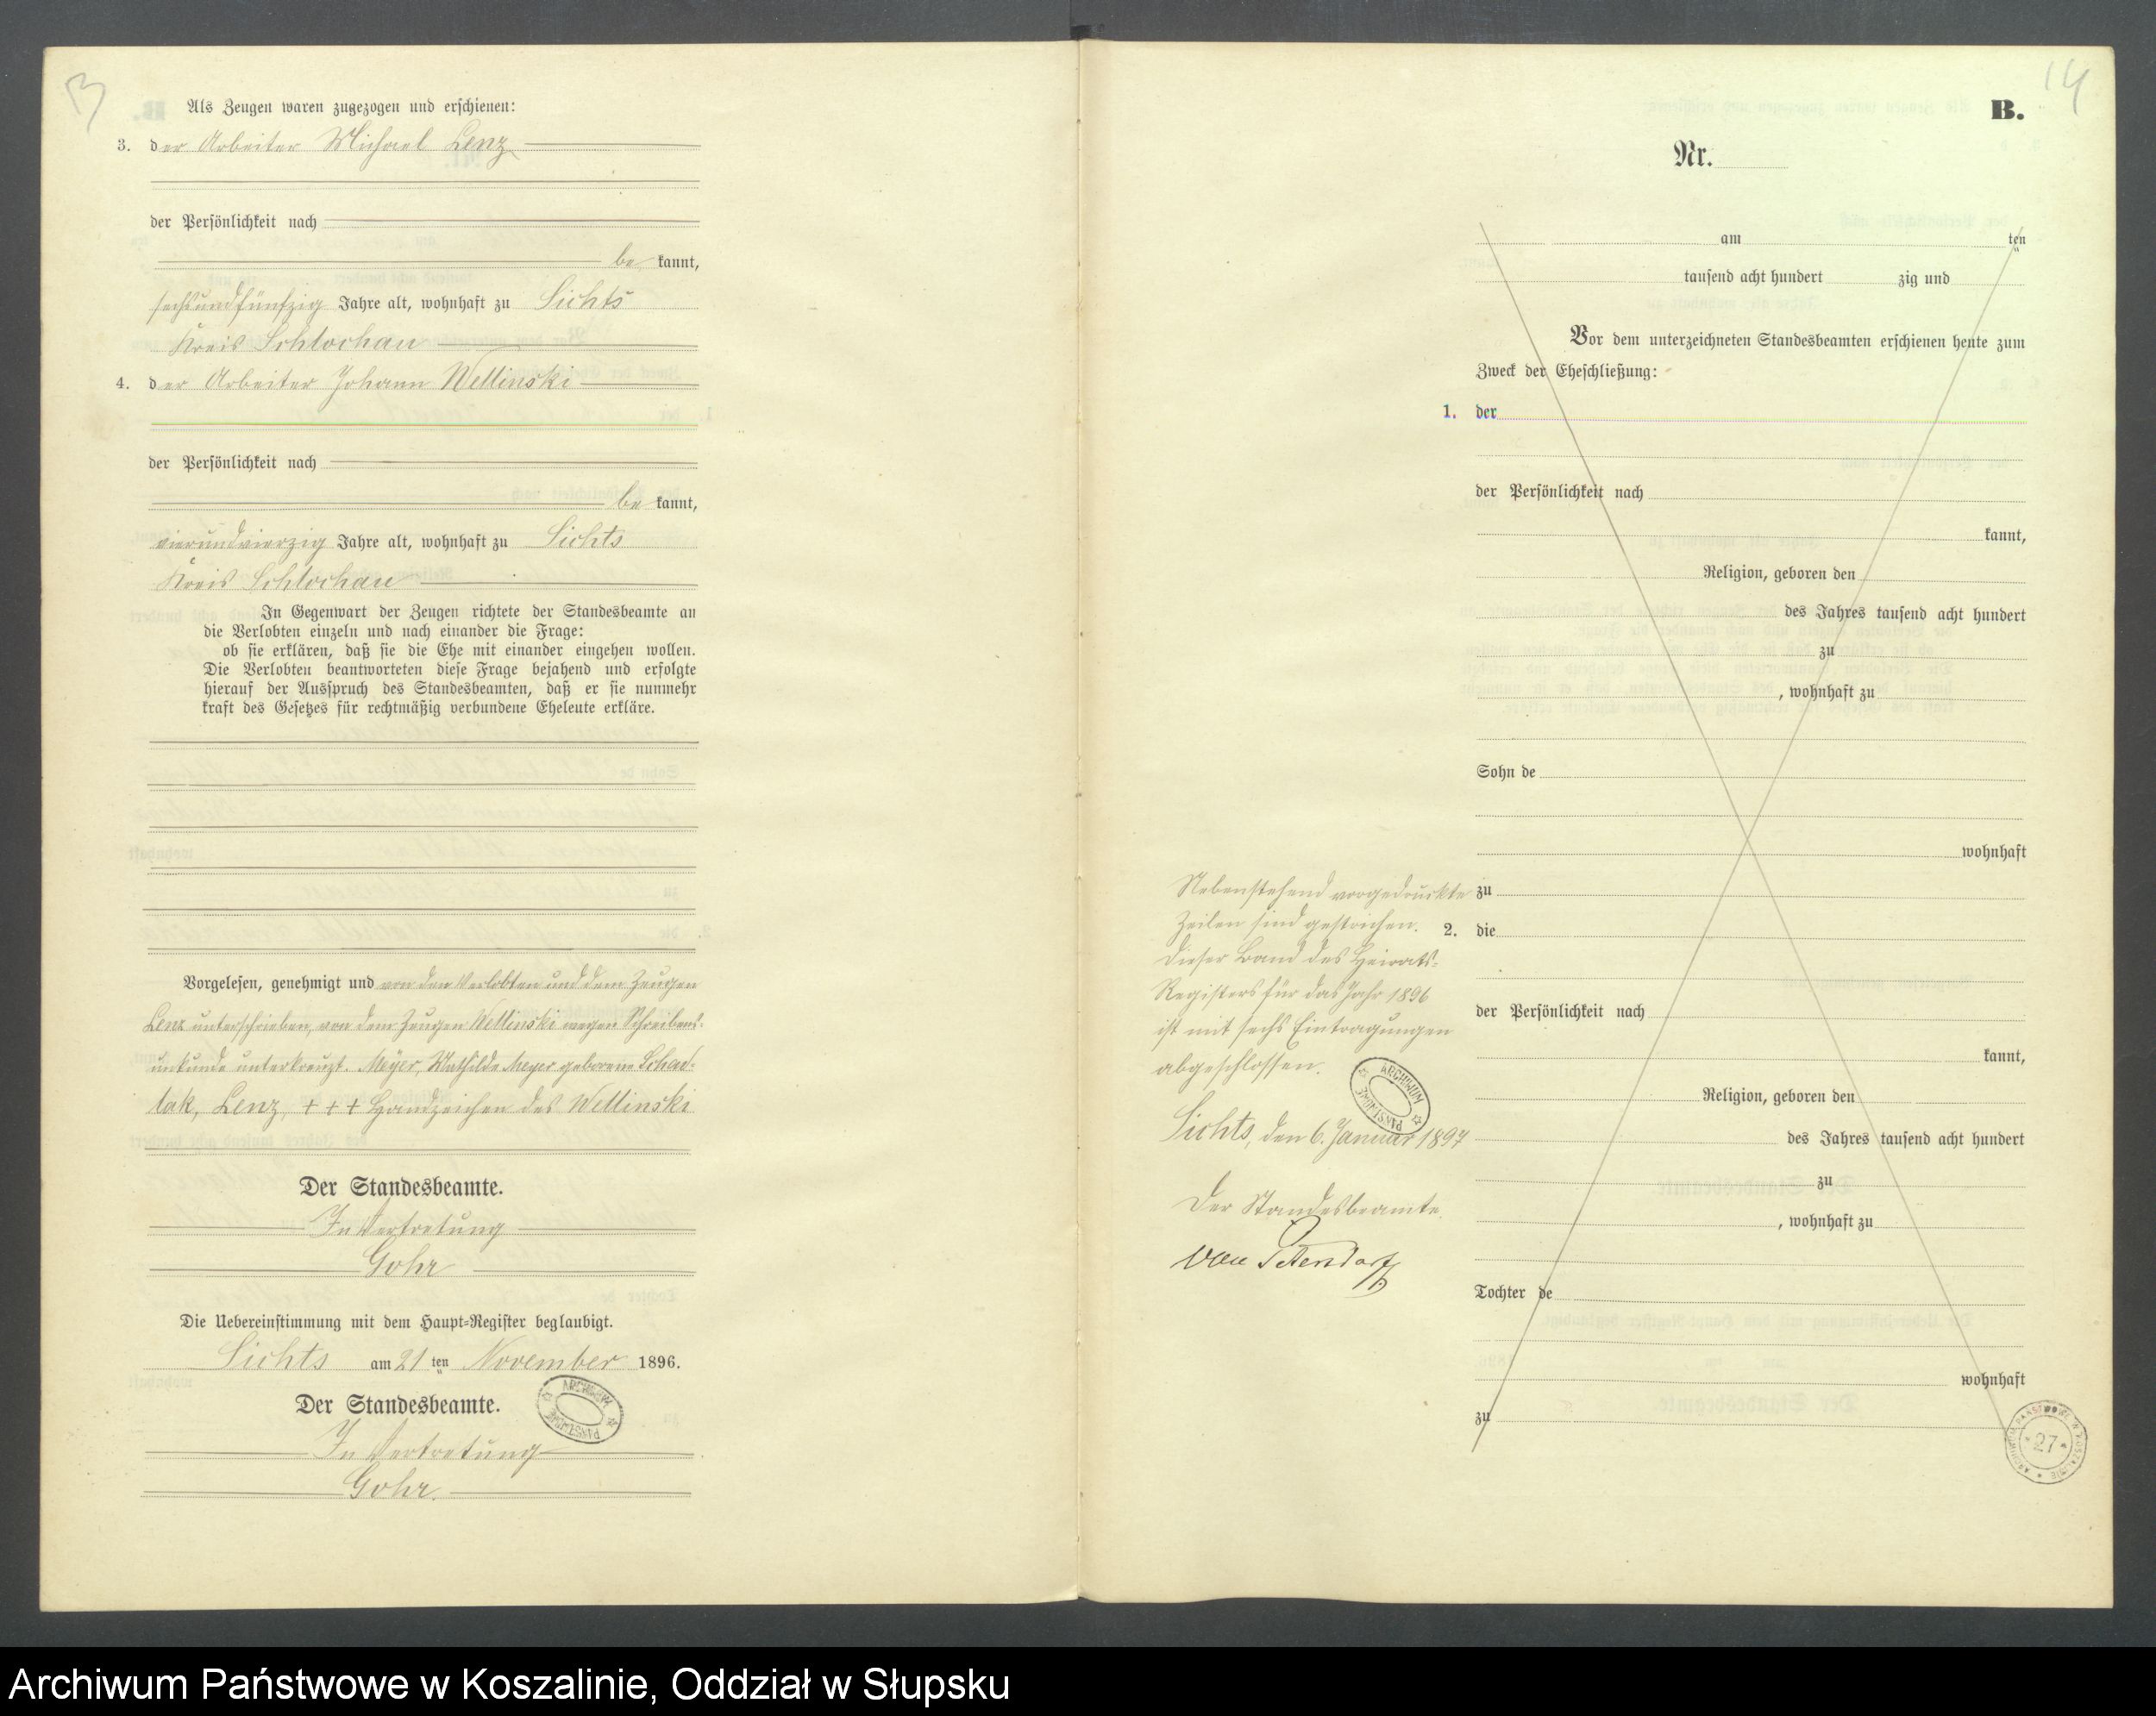 13
Als Zeugen waren zugezogen und erschienen:
3. der Arbeiter Michael Lenz
der Persönlichkeit nach
be kannt,
sechsundfünfzig Jahre alt, wohnhaft zu Sichts
Kreis Schlochau
4. der Arbeiter Johann Wellinski
der Persönlichkeit nach
be kannt,
vierundvierzig Jahre alt, wohnhaft zu Sichts
Kreis Schlochau
In Gegenwart der Zeugen richtete der Standesbeamte an
die Verlobten einzeln und nach einander die Frage:
ob sie erklären, daß sie die Ehe mit einander eingehen wollen.
Die Verlobten beantworteten diese Frage bejahend und erfolgte
hierauf der Ausspruch des Standesbeamten, daß er sie nunmehr
kraft des Gesetzes für rechtmäßig verbundene Eheleute erkläre.
Vorgelesen, genehmigt und von den Verlobten und dem Zeugen
Lenz unterschrieben, von dem Zeugen Wellinski wegen Schreibens-
unkunde unterkreuzt. Meyer, Mathilde Meyer geborene
Lenz, +++ Handzeichen des Wellinski
Der Standesbeamte.
In Vertretung
Gohr
Die Uebereinstimmung mit dem Haupt=Register beglaubigt.
Sichts am 21 ten November 1896.
Der Standesbeamte.
In Vertretung
Gohr.
ARCHIWUM PAŃSTWOWE
14
B.
Nr.
am ten
tausend acht hundert zig und
Vor dem unterzeichneten Standesbeamten erschienen heute zum
Zweck der Eheschließung:
1. der
der Persönlichkeit nach
kannt,
Religion, geboren den
des Jahres tausend acht hundert
zu
, wohnhaft zu
Sohn de
wohnhaft
zu
2. die
der Persönlichkeit nach
kannt,
Religion, geboren den
des Jahres tausend acht hundert
zu
, wohnhaft zu
Tochter de
wohnhaft
zu
Nebenstehend vorgedruckte
Zeilen sind gestrichen.
Dieser Band des Heirats-
Registers für das Jahr 1896
ist mit sechs Eintragungen
abgeschlossen.
Sichts, den 6. Januar 1897
Der Standesbeamte.
von Petersdorff
ARCHIWUM PAŃSTWOWE
ARCHIWUM PAŃSTWOWE W KOSZALINIE
27
Archiwum Państwowe w Koszalinie, Oddział w Słupsku